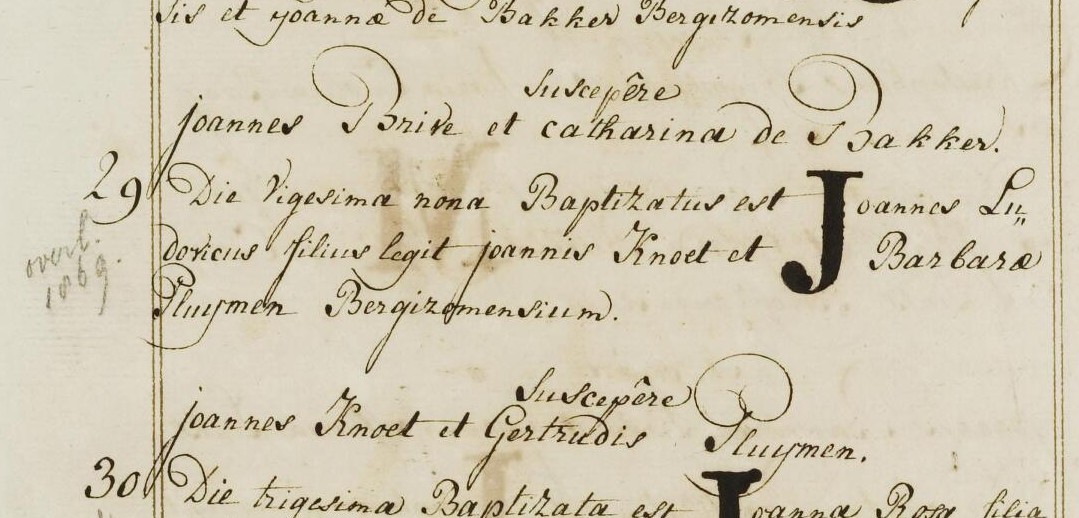 sis et joannæ de Bakker Bergizomensis
Suscepêre
joannes Brive et catharina de Bakker.
29 Die Vigesima nona Baptizatus est Joannes Lu„
dovicus filius legit joannis Knoet et Barbaræ
Pluijmen Bergizomensium.
overl.
1869.
Suscepêre
joannes Knoet et Gertrudis Pluijmen.
30 Die trigesima Baptizata est Joanna Rosa filia